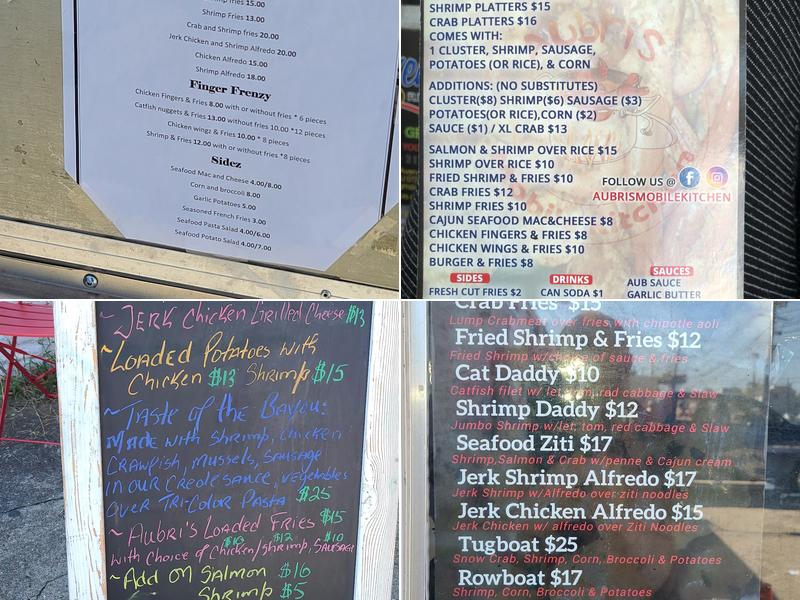 Shrimp fries 15.00
Shrimp Fries 13.00
Crab and Shrimp fries 20.00
Jerk Chicken and Shrimp Alfredo 20.00
Chicken Alfredo 15.00
Shrimp Alfredo 18.00
Finger Frenzy
Chicken Fingers & Fries 8.00 with or without fries * 6 pieces
Catfish nuggets & Fries 13.00 without fries 10.00 *12 pieces
Chicken wingz & Fries 10.00 * 8 pieces
Shrimp & Fries 12.00 with or without fries *8 pieces
Sidez
Seafood Mac and Cheese 4.00/8.00
Corn and broccoli 8.00
Garlic Potatoes 5.00
Seasoned French Fries 3.00
Seafood Pasta Salad 4.00/6.00
Seafood Potato Salad 4.00/7.00
SHRIMP PLATTERS $15
CRAB PLATTERS $16
COMES WITH:
1 CLUSTER, SHRIMP, SAUSAGE,
POTATOES (OR RICE), & CORN
ADDITIONS: (NO SUBSTITUTES)
CLUSTER($8) SHRIMP($6) SAUSAGE ($3)
POTATOES(OR RICE),CORN ($2)
SAUCE ($1) / XL CRAB $13
SALMON & SHRIMP OVER RICE $15
SHRIMP OVER RICE $10
FRIED SHRIMP & FRIES $10
CRAB FRIES $12
SHRIMP FRIES $10
CAJUN SEAFOOD MAC&CHEESE $8
CHICKEN FINGERS & FRIES $8
CHICKEN WINGS & FRIES $10
BURGER & FRIES $8
FOLLOW US @
AUBRISMOBILEKITCHEN
SIDES
FRESH CUT FRIES $2
DRINKS
CAN SODA $1
SAUCES
AUB SAUCE
GARLIC BUTTER
~JERK Chicken Grilled Cheese $13
~Loaded Potatoes with
Chicken $13 Shrimp $15
~Taste of the Bayou:
Made with Shrimp, Chicken
CRAWFish, Mussels, SAUSAGE
in our Creole sauce, vegetables
over TRI-Color Pasta $25
~Aubri's Loaded Fries $15
with choice of Chicken/Shrimp, SAUSAGE
$13 $12 $10
~Add on Salmon $16
Shrimp $5
Crab Fries $15
Lump Crabmeat over fries with chipotle aoli
Fried Shrimp & Fries $12
Fried Shrimp w/choice of sauce & fries
Cat Daddy $10
Catfish filet w/ let, tom, rad cabbage & Slaw
Shrimp Daddy $12
Jumbo Shrimp w/let, tom, red cabbage & Slaw
Seafood Ziti $17
Shrimp,Salmon & Crab w/penne & Cajun cream
Jerk Shrimp Alfredo $17
Jerk Shrimp w/Alfredo over ziti noodles
Jerk Chicken Alfredo $15
Jerk Chicken w/ alfredo over Ziti Noodles
Tugboat $25
Snow Crab, Shrimp, Corn, Broccoli & Potatoes
Rowboat $17
Shrimp, Corn, Broccoli & Potatoes